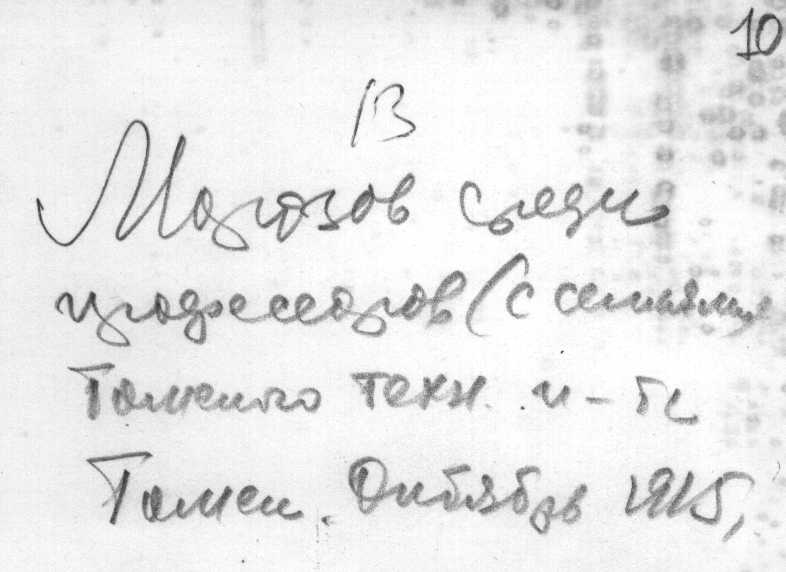 10
13
Морозов среди
профессоров (с семьями
Томского техн. и-та
Томск. Октябрь 1915,